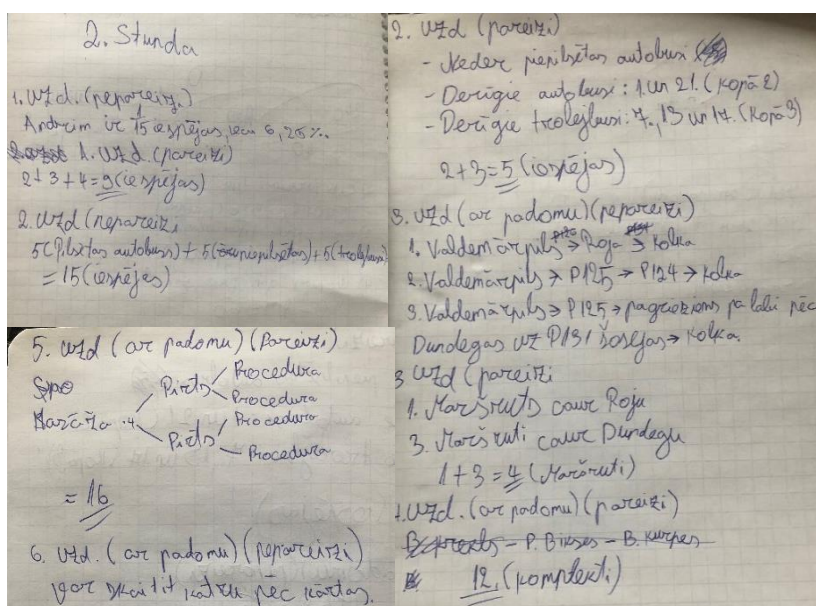 2. Stunda
1. Uzd. (nepareizi)
Andrim ir 1/15 iespējas, 6,25%.
1. Uzd. (pareizi)
2+3+4=9 (iespējas)
2. Uzd (nepareizi
5(Pilsētas autobusi) + 5( ) + 5(trolejbusi)
= 15 (iespējas)
5. Uzd (ar padomu) (Pareizi)
Pirts Procedura
Procedura
.4
Pirts Procedura
Procedura
= 16
6. Uzd. (ar padomu) (nepareizi)
Var skaitīt katru pēc kārtas.
2. Uzd (pareizi)
- Neder piepilsētas autobusi
- Derīgie autobusi: 1. un 21. (Kopā 2)
- Derīgie trolejbusi: 7., 13 un 17. (Kopā 3)
2+3=5 (iespējas)
3. Uzd (ar padomu) (nepareizi)
1. Valdemārpils → Roja → Kolka
2. Valdemārpils → P125 → P124 → Kolka
3. Valdemārpils → P125 → pagrieziens pa labi pēc
Dundagas uz P131 šosejas → Kolka.
3 Uzd (pareizi
1. Maršruts caur Roju
3. Maršruti caur Dundagu
1+3=4 (Maršruti)
Uzd. (ar padomu) (pareizi)
P. Bikses - B. Kurpes
12. (Komplekti)